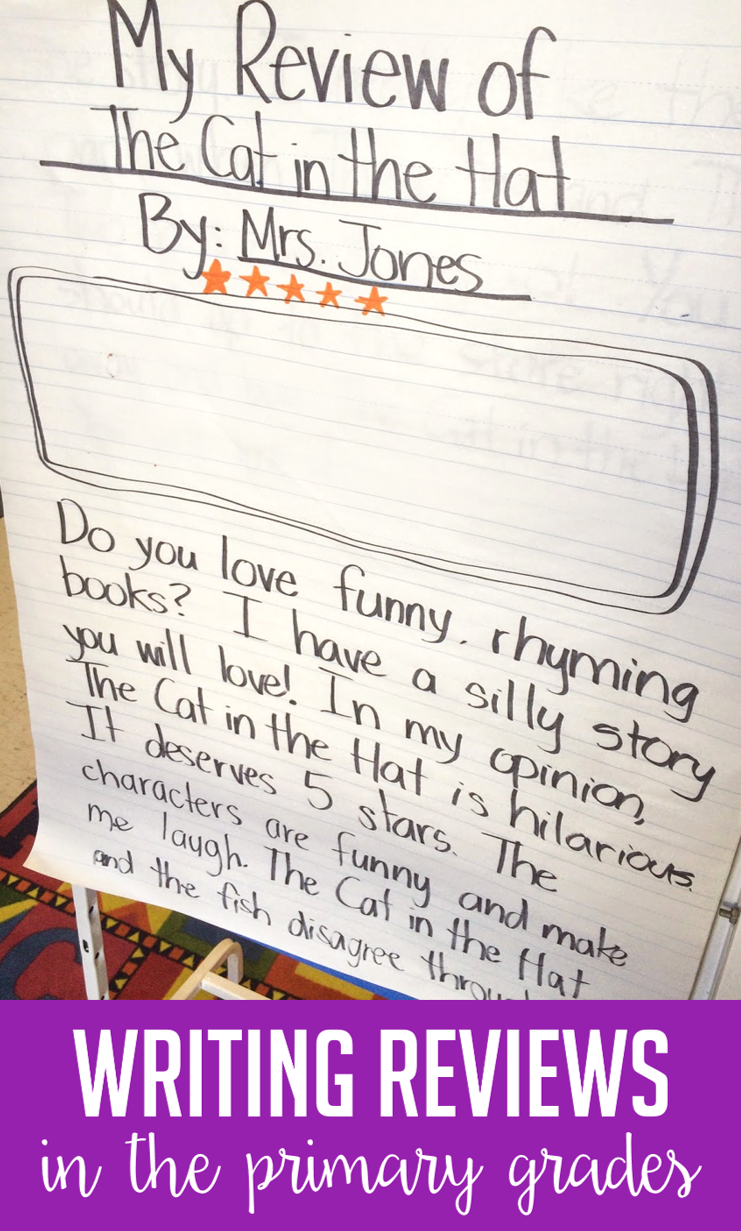 My Review of
The Cat in the Hat
By: Mrs. Jones
Do you love funny, rhyming
books? I have a silly story
you will love! In my opinion,
The Cat in the Hat is hilarious.
It deserves 5 stars. The
characters are funny and make
me laugh. The Cat in the Hat
and the fish disagree
WRITING REVIEWS
in the primary grades